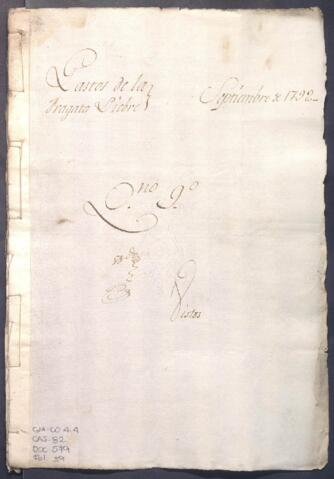 Gastos de la
Fragata Liebre
Septiembre de 1792
Q.no 9.o
Vistos
GM-CO 4.4
CAJ. 82
DOC 579
fol. 39